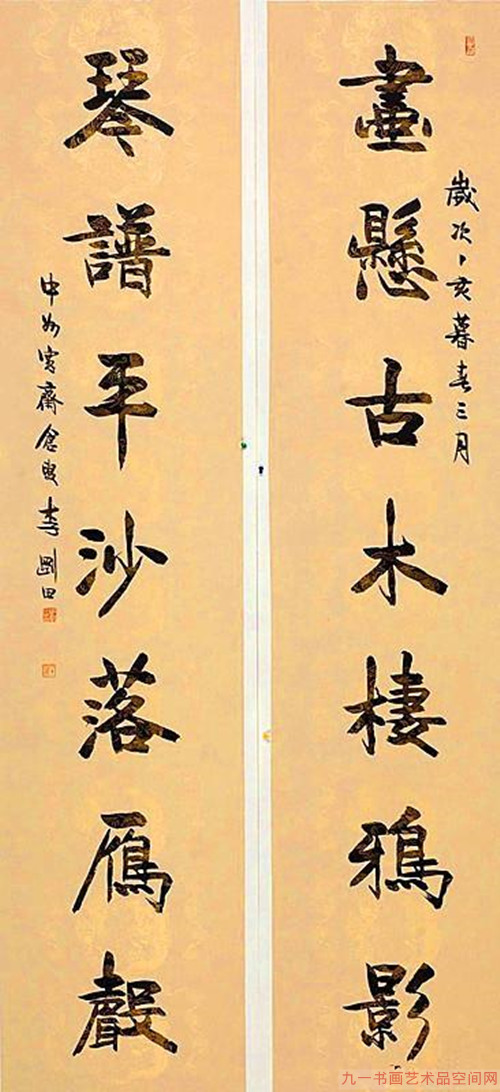 歲次丁亥暮春三月
畫懸古木棲鴉影
琴譜平沙落雁聲
中州寬齋倉叟李剛田
九一书画艺术品空间网